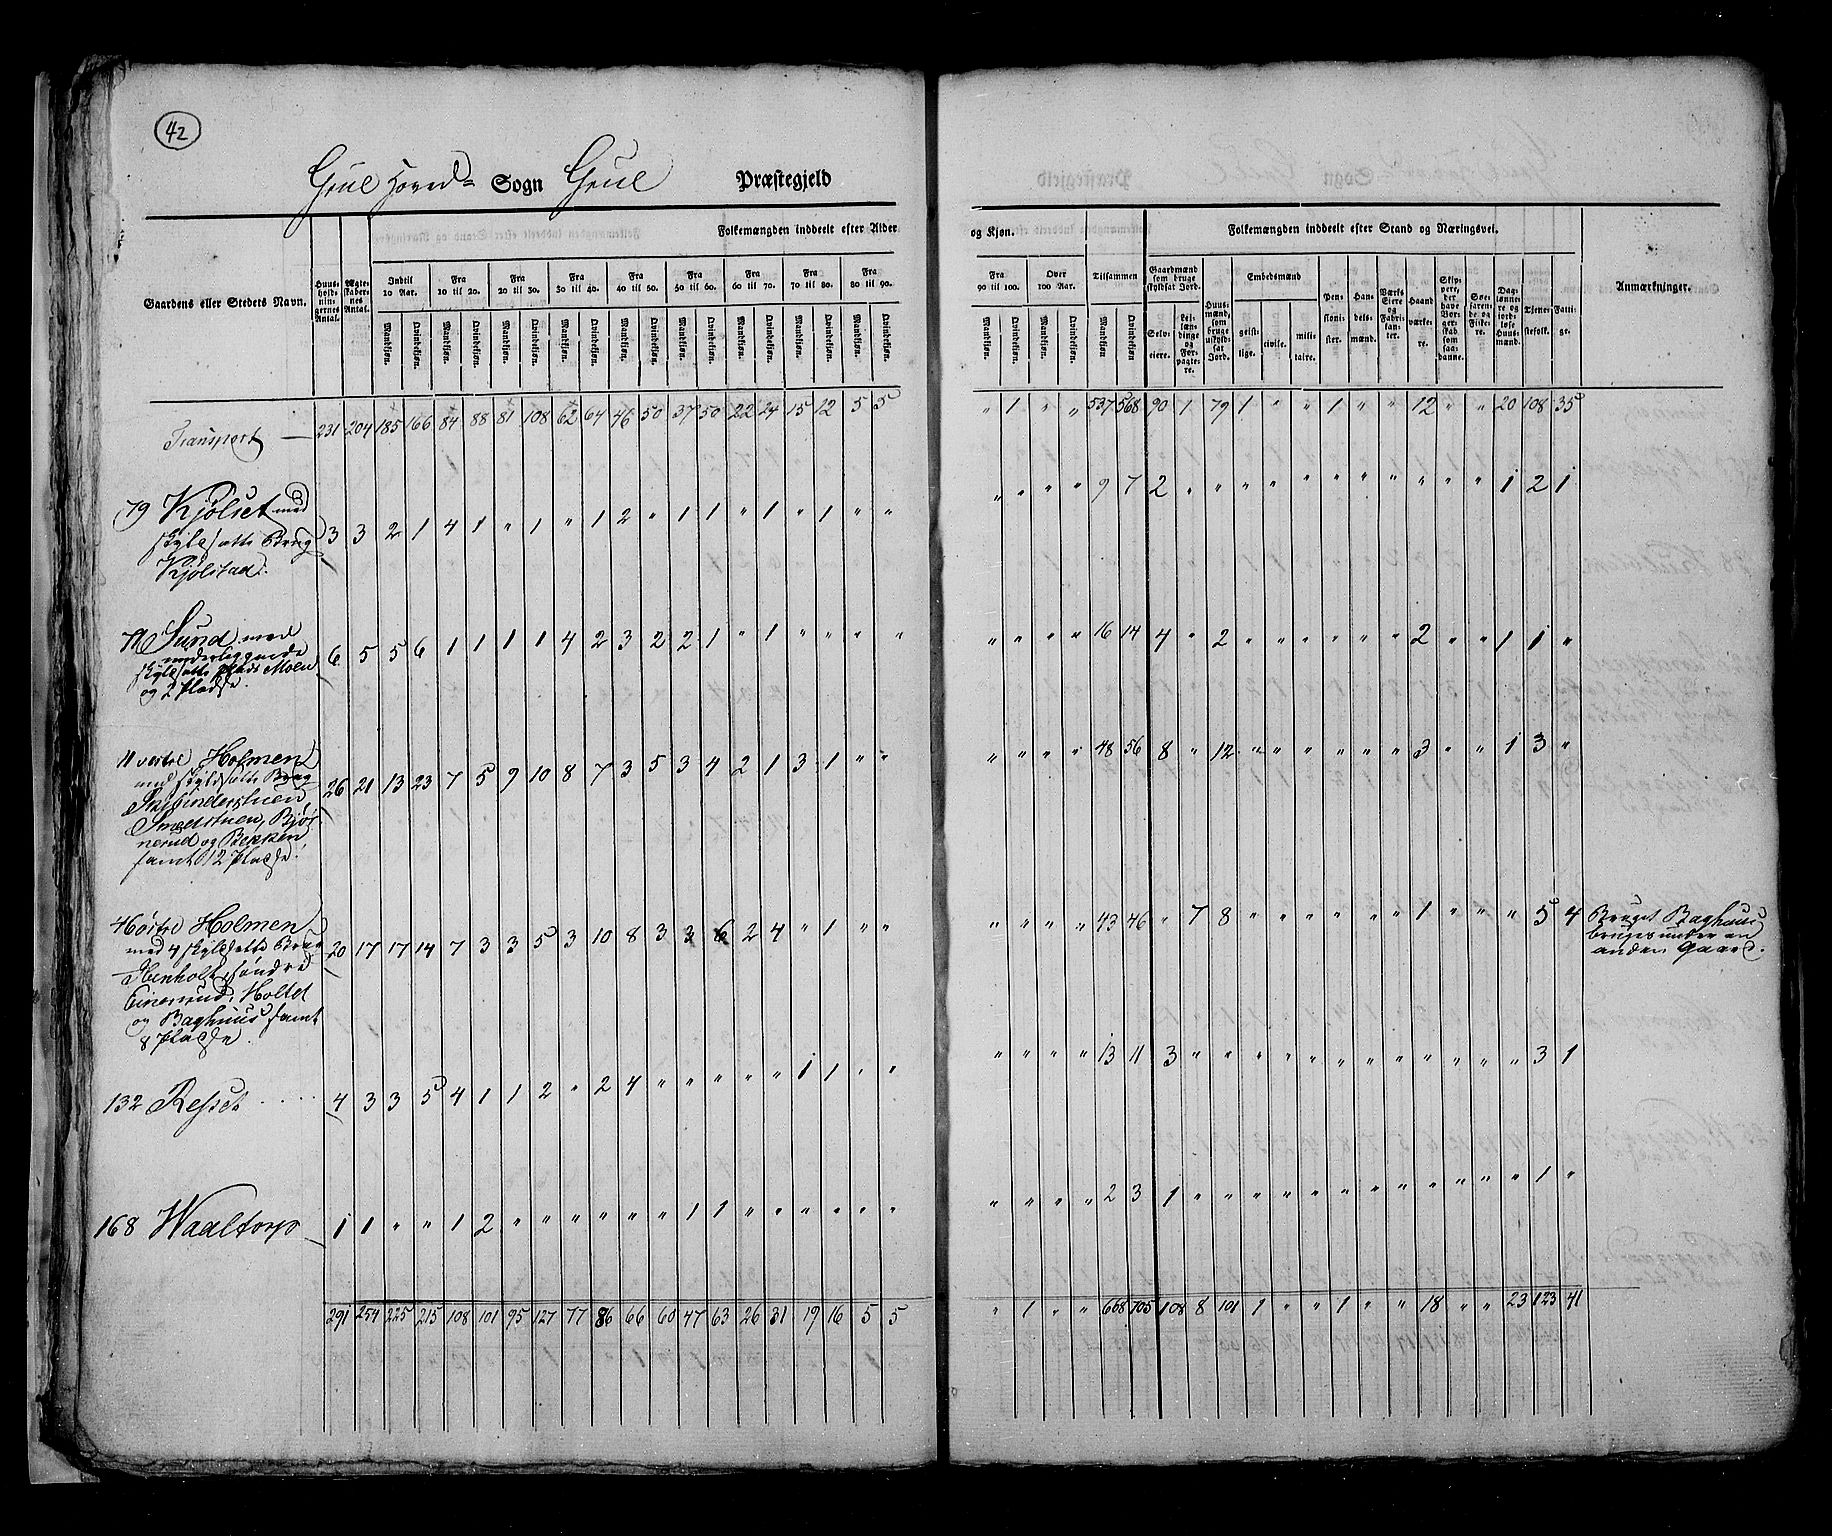 42
Grue Hoved= Sogn Grue Præstegjeld
Gaardens eller Stedets Navn.
Huusholdningernes Antal.
Ægteskabernes Antal.
Folkemængden inddeelt efter Alder
Indtil 10 Aar. Fra 10 til 20. Fra 20 til 30. Fra 30 til 40. Fra 40 til 50. Fra 50 til 60. Fra 60 til 70. Fra 70 til 80. Fra 80 til 90.
Mandkjøn. Qvindekjøn. Mandkjøn. Qvindekjøn. Mandkjøn. Qvindekjøn. Mandkjøn. Qvindekjøn. Mandkjøn. Qvindekjøn. Mandkjøn. Qvindekjøn. Mandkjøn. Qvindekjøn. Mandkjøn. Qvindekjøn. Mandkjøn. Qvindekjøn.
Transport 231 204 185 166 84 88 81 108 62 64 46 50 37 50 22 24 15 12 5 5
79 Kjølset med
skyldsatte Brug
Kjølstad.
3 3 2 1 4 1 " 1 " 1 2 " 1 1 " 1 " 1 " "
Sund med
underliggende
skyldsatte Plads Moen
og 2 Pladse.
6 5 5 6 1 1 1 1 4 2 3 2 2 1 " 1 " " " "
11 vestre Holmen
med skyldsatte Brug
Smedstuen, Bjør-
nerud og Bekken
samt 12 Pladse.
26 21 13 23 7 5 9 10 8 7 3 5 3 4 2 1 3 1 " "
4 østre Holmen
med 4 skyldsatte Brug
Henholt, søndre
Einerud, Holtet
og Baghuus samt
8 Pladse.
20 17 17 14 7 3 3 5 3 10 8 3 3 6 2 4 " 1 " "
132 Resset
4 3 3 5 4 1 1 2 " 2 4 " " " " " 1 1 " "
168 Waaltorp
1 1 " " 1 2 " " " " " " 1 1 " " " " " "
291 254 225 215 108 101 95 127 77 86 66 60 47 63 26 31 19 16 5 5
og Kjøn.
Folkemængden inddeelt efter Stand og Næringsvei.
Anmærkninger.
Fra 90 til 100. Over 100 Aar. Tilsammen
Mandkjøn. Qvindekjøn. Mandkjøn. Qvindekjøn. Mandkjøn. Qvindekjøn.
Gaardmænd som bruge skyldsat Jord.
Selveiere.
Leilændinge og Forpagtere.
Huusmænd, som bruge uskyldsat Jord.
Embedsmænd
geistlige. civile. militaire.
Pensionister.
Handelsmænd.
Værks Eiere og Fabrikanter.
Haandværkere.
Skippere, der have Borgerskab som saadanne.
Søefarende og Fiskere.
Daglønnere og jordløse Huusmænd.
Tjenestefolk.
Fattige.
" 1 " " 537 568 90 1 79 1 " " 1 " " 12 " " 20 108 35
" " " " 9 7 2 " " " " " " " " " " " 1 2 1
" " " " 16 14 4 " 2 " " " " " " 2 " " 1 1 "
" " " " 48 56 8 " 12 " " " " " " 3 " " 1 3 "
" " " " 43 46 " 7 8 " " " " " " 1 " " " 5 4
Bruget Baghuus
bruges under en
anden Gaard.
" " " " 13 11 3 " " " " " " " " " " " " 3 1
" " " " 2 3 1 " " " " " " " " " " " " 1 "
" 1 " " 668 705 108 8 101 1 " " 1 " " 18 " " 23 123 41